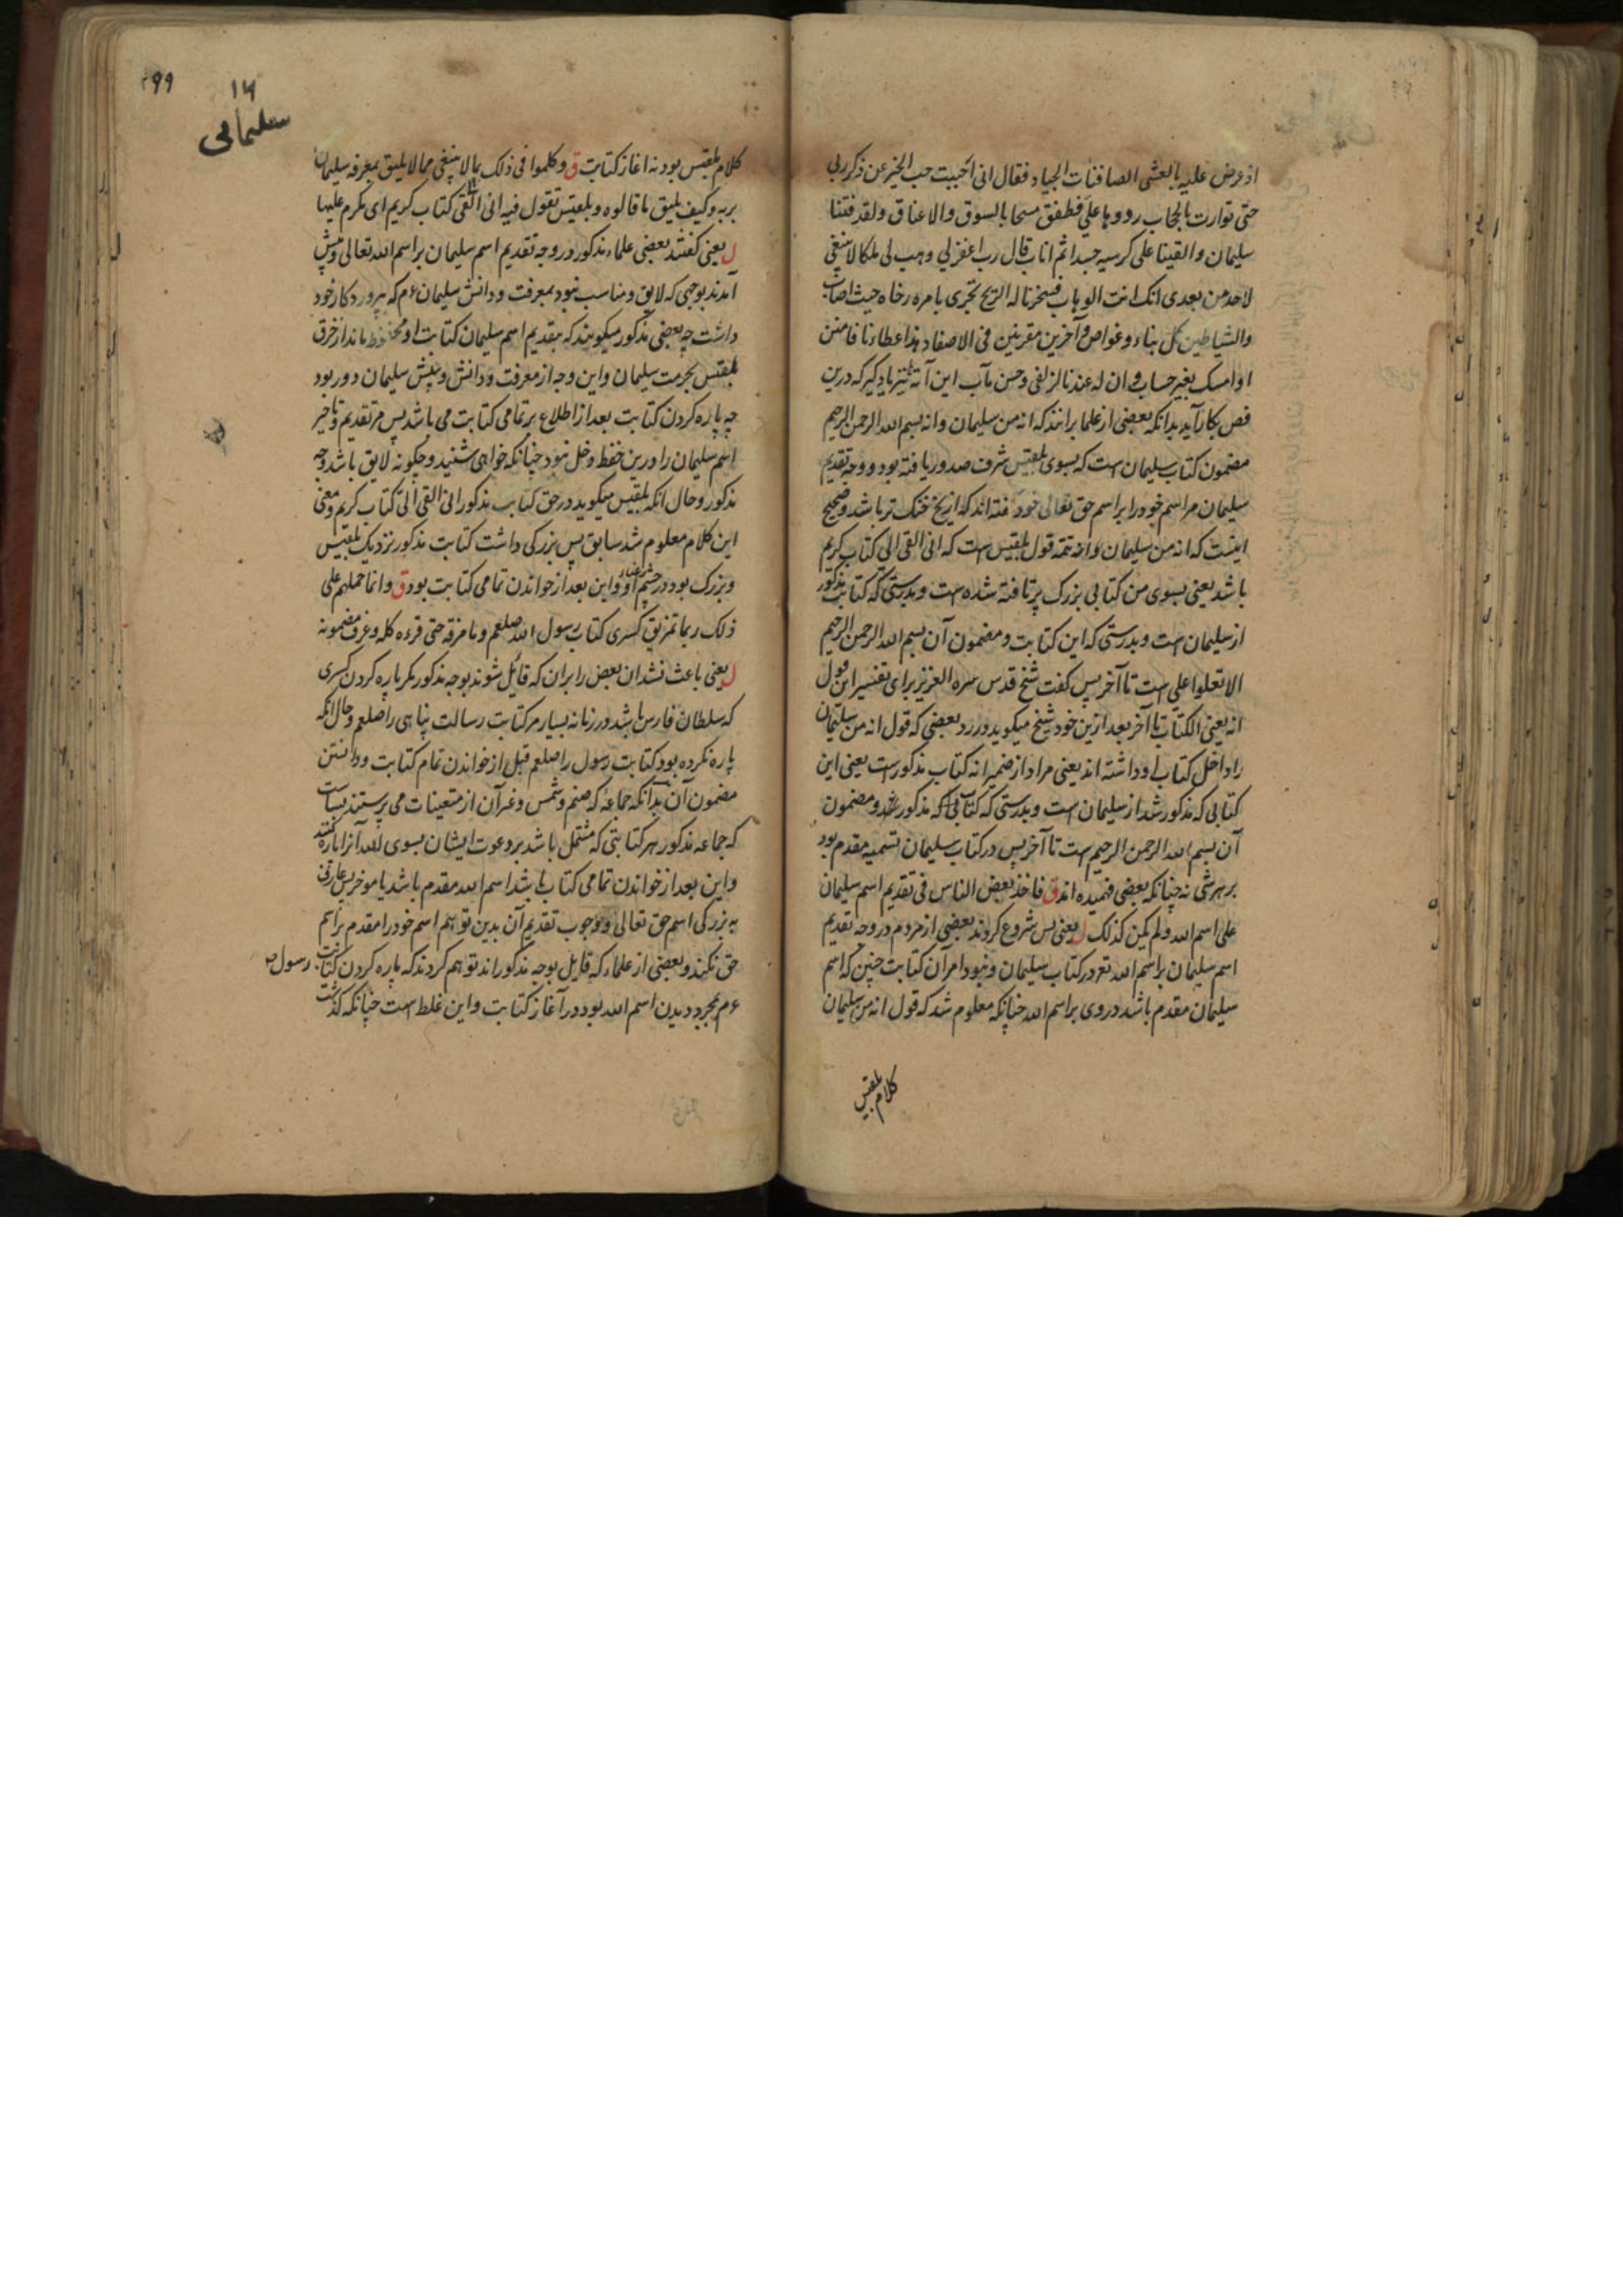 اذ عرض علیه بالعشی الصافنات الجیاد فقال انی احببت حب الخیر عن ذکر ربی
حتی توارت بالحجاب ردوها علی فطفق مسحا بالسوق والاعناق ولقد فتنا
سلیمان والقینا علی کرسیه جسدا ثم اناب قال رب اغفرلی وهب لی ملکا لا ینبغی
لاحد من بعدی انک انت الوهاب فسخرنا له الریح تجری بامره رخاء حیث اصاب
والشیاطین کل بناء وغواص وآخرین مقرنین فی الاصفاد هذا عطاءنا فامنن
او امسک بغیر حساب وان له عندنا لزلفی وحسن مآب این آیه نیز یاد گیر که درین
فص بکار آید بدانکه بعضی از علما برانند که انه من سلیمان وانه بسم الله الرحمن الرحیم
مضمون کتاب سلیمان است که بسوی بلقیس شرف صدور یافته بود و وجه تقدیم
سلیمان مر اسم خود را بر اسم حق تعالی خود گفته اند که از یخ خنک تر باشد وصحیح
اینست که انه من سلیمان وانه تتمه قول بلقیس است که انی القی الی کتاب کریم
باشد یعنی بسوی من کتابی بزرگ پرتافته شده است وبدرستی که کتاب مذکور
از سلیمان است وبدرستی که این کتابت ومضمون آن بسم الله الرحمن الرحیم
الا تعلوا علی است تا آخر پس گفت شیخ قدس سره العزیز برای تفسیر این قول
انه یعنی الکتاب تا آخر بعد ازین خود شیخ میگوید در رد بعضی که قول انه من سلیمان
را داخل کتاب او داشته اند یعنی مراد از ضمیر انه کتاب مذکور است یعنی این
کتابی که مذکور شد از سلیمان است وبدرستی که کتابی که مذکور شد ومضمون
آن بسم الله الرحمن الرحیم است تا آخر پس در کتاب سلیمان تسمیه مقدم بود
بر هر شی نه چنانکه بعضی فهمیده اند ق فاخذ بعض الناس فی تقدیم اسم سلیمان
علی اسم الله ولم یکن کذلک ل یعنی پس شروع کردند بعضی از مردم در وجه تقدیم
اسم سلیمان بر اسم الله تع در کتاب سلیمان ونبود امر آن کتابت چنین که اسم
سلیمان مقدم باشد در وی بر اسم الله چنانکه معلوم شد که قول انه من سلیمان
کلام بلقیس
۱۶
سلیمانی
کلام بلقیس بود نه اغاز کتابت ق وکلموا فی ذلک بما لا ینبغی مما لا یلیق بمعرفه سلیمان
بربه وکیف یلیق ما قالوه وبلقیس تقول فیه انی القی کتاب کریم ای یکرم علیها
ل یعنی گفتند بعضی علماء مذکور در وجه تقدیم اسم سلیمان بر اسم الله تعالی وپیش
آمدند بوجهی که لایق ومناسب نبود بمعرفت ودانش سلیمان ءم که بپروردکار خود
داشت چه بعضی مذکور میگویند که بتقدیم اسم سلیمان کتابت او محفوظ ماند از خرق
بلقیس بحرمت سلیمان واین وجه از معرفت ودانش وبینش سلیمان دور بود
چه پاره کردن کتابت بعد از اطلاع بر تمامی کتابت می باشد پس مر تقدیم وتاخیر
اسم سلیمان را درین حفظ دخل نبود چنانکه خواهی شنید وچگونه لایق باشد وجه
مذکور وحال انکه بلقیس میگوید در حق کتاب مذکور انی القی الی کتاب کریم ومعنی
این کلام معلوم شد سابق پس بزرگی داشت کتابت مذکور نزدیک بلقیس
وبزرگ بود در چشم او واین بعد از خواندن تمامی کتابت بود ق وانما حملهم علی
ذلک ربما تمزیق کسری کتاب رسول الله صلعم وما مزقه حتی قرءه کله وعرف مضمونه
ل یعنی باعث نشد ان بعض را بران که قائل شوند بوجه مذکور مگر پاره کردن کسری
که سلطان فارس باشد در زمانه بسیار مر کتابت رسالت پناهی را صلعم وحال انکه
پاره نکرده بود کتابت رسول را صلعم قبل از خواندن تمام کتابت ودانستن
مضمون آن بدانکه جماعه که صنم وشمس وغیر آن از متعینات می پرستند
که جماعه مذکور هر کتابتی که مشتمل باشد بر دعوت ایشان بسوی الله آنرا پاره کنند
واین بعد از خواندن تمامی کتاب باشد اسم الله مقدم باشد یا موخر پس عارف
به بزرگی اسم حق تعالی ووجوب تقدیم آن بدین توهم اسم خود را مقدم بر اسم
حق نکند وبعضی از علماء که قایل بوجه مذکور اند توهم کردند که پاره کردن کتابت رسول
ءم بمجرد دیدن اسم الله بود در آغاز کتابت واین غلط است چنانکه گذشت